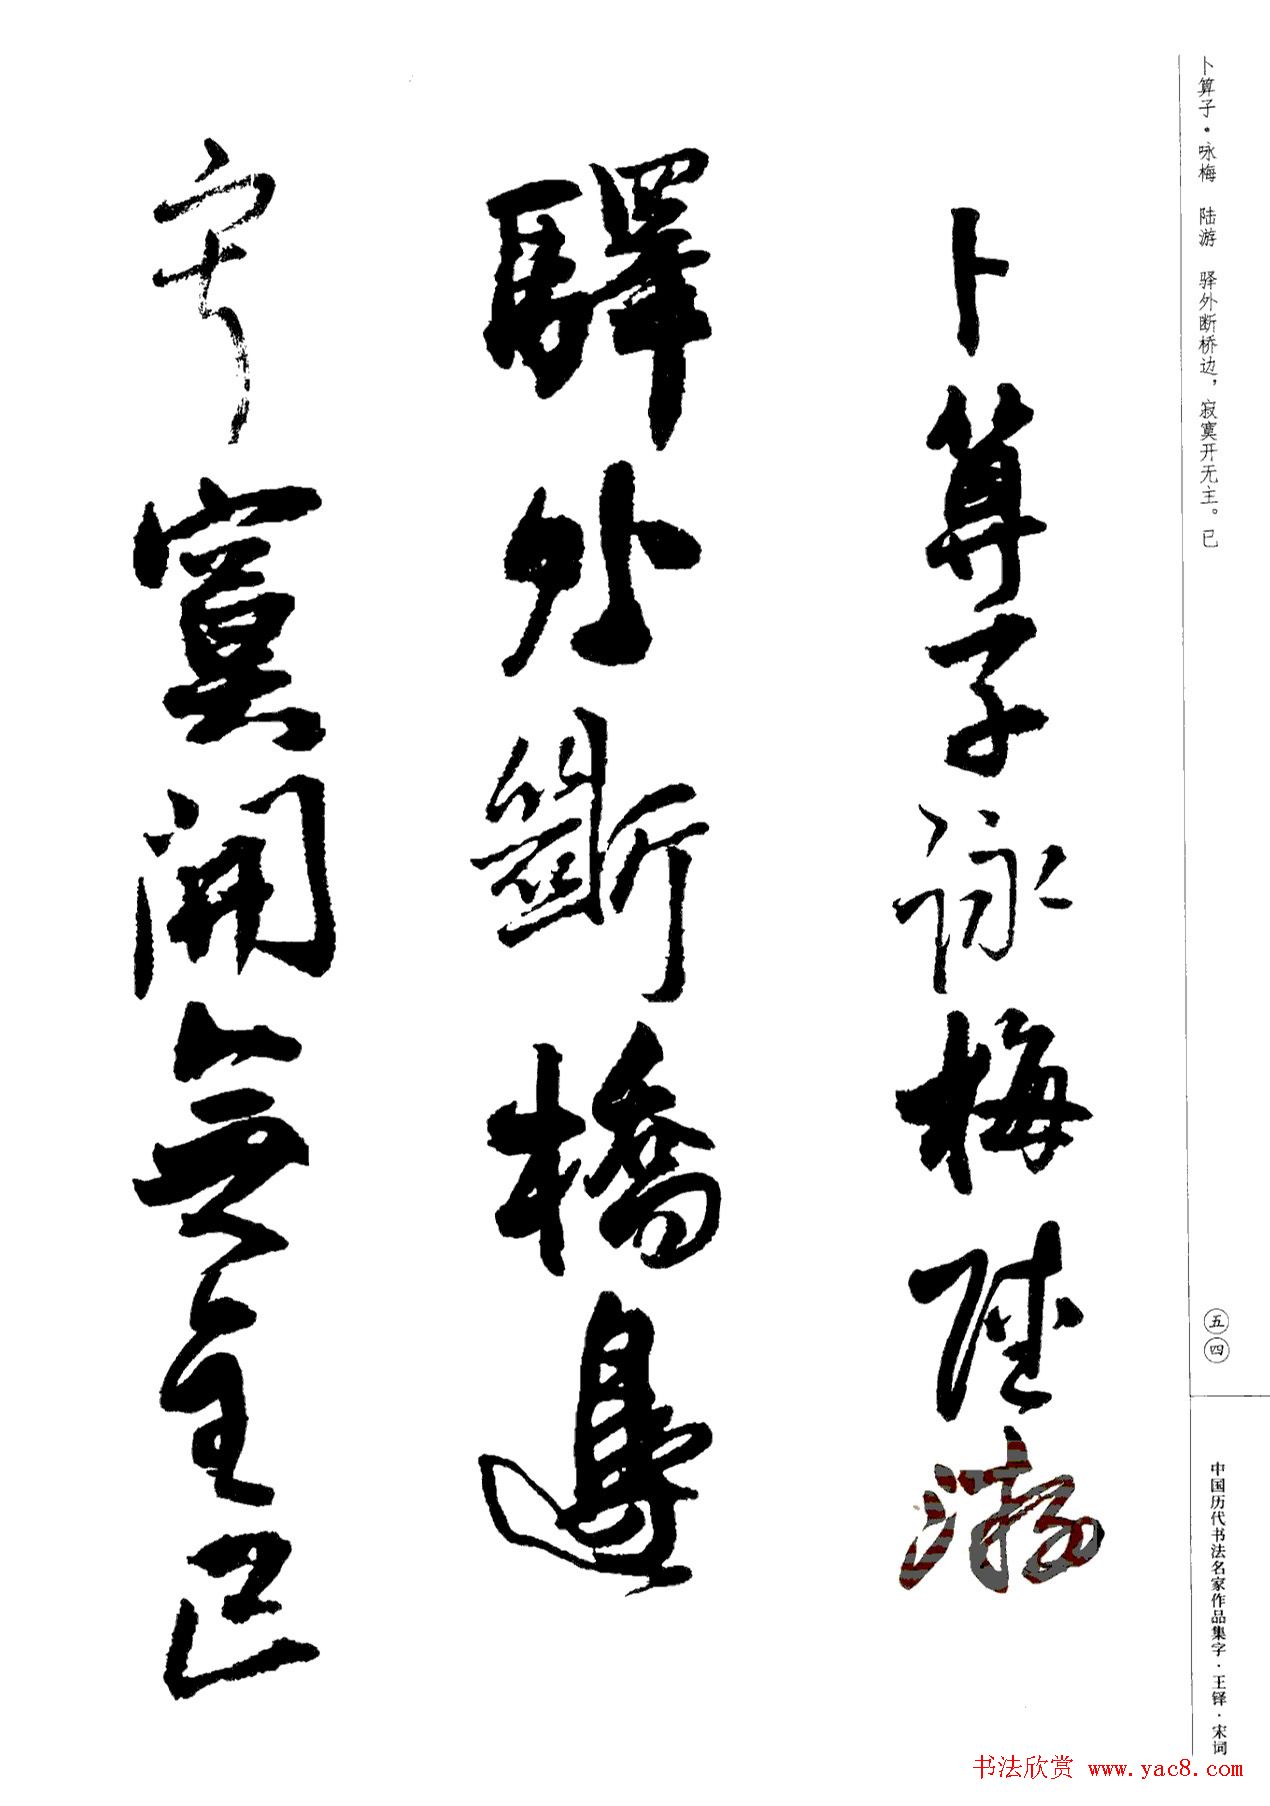 卜算子·咏梅 陆游 驿外断桥边，寂寞开无主。已
五四
中国历代书法名家作品集字·王铎·宋词
卜算子詠梅陸游
驛外斷橋邊
寂寞開無主已
书法欣赏 www.yac8.com